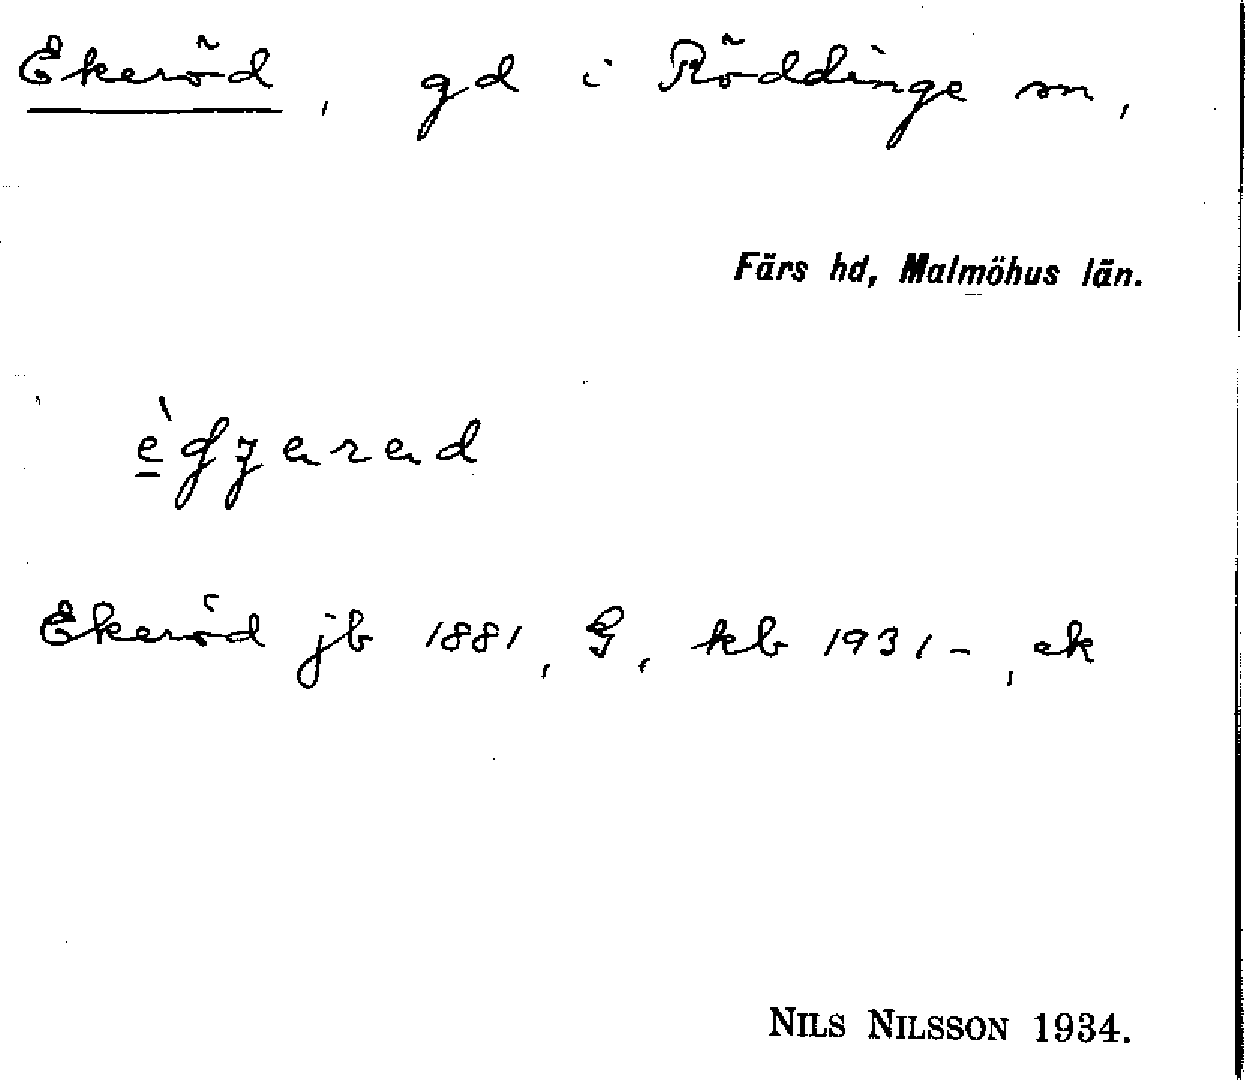 Ekeröd, gd i Röddinge sn,
Färs hd, Malmöhus län.
Ekeröd jb 1881, G, kb 1931-, ek
NILS NILSSON 1934.